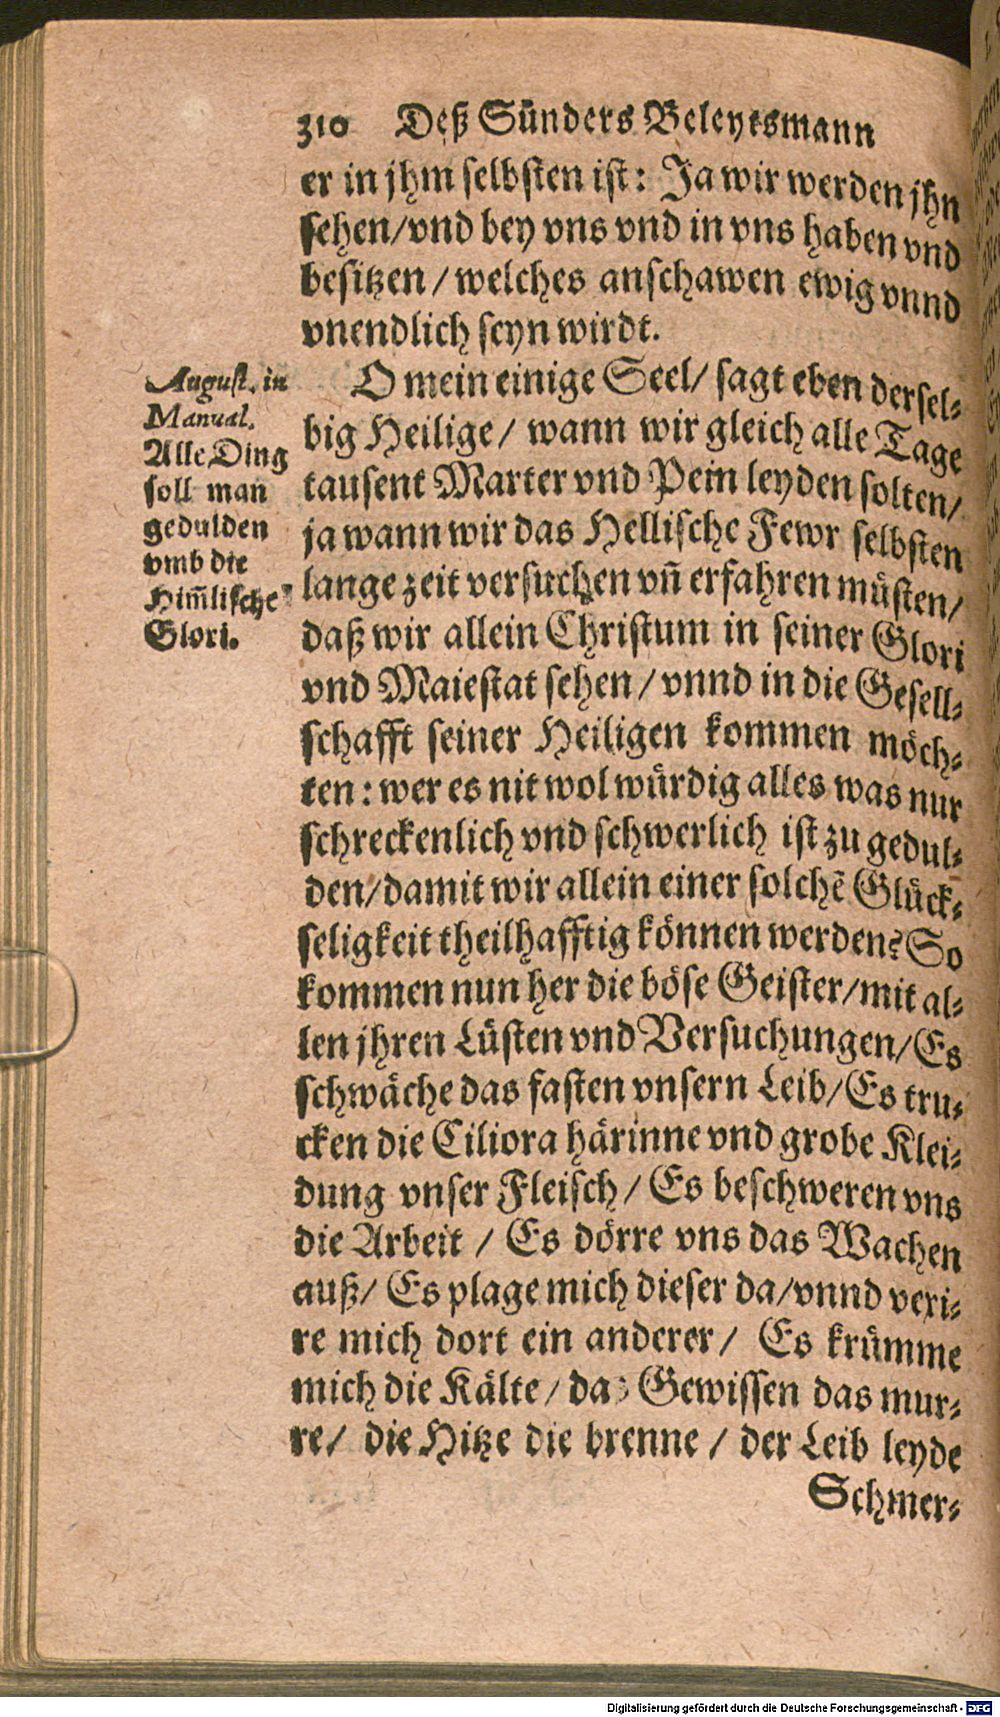 310 Deß Sünders Beleytsmann
er in jhm selbsten ist: Ja wir werden jhn
sehen/vnd bey vns vnd in vns haben vnd
besitzen/welches anschawen ewig vnnd
vnendlich seyn wirdt.
August. in
Manual.
Alle Ding
soll man
gedulden
vmb die
Him̄lische
Glori.
O mein einige Seel/ sagt eben dersel-
big Heilige/ wann wir gleich alle Tage
tausent Marter vnd Pein leyden solten/
ja wann wir das Hellische Fewr selbsten
lange zeit versuchen vn̄ erfahren müsten/
daß wir allein Christum in seiner Glori
vnd Maiestat sehen/vnnd in die Gesell-
schafft seiner Heiligen kommen möch-
ten: wer es nit wol würdig alles was nur
schreckenlich vnd schwerlich ist zu gedul-
den/damit wir allein einer solchē Glück-
seligkeit theilhafftig können werden? So
kommen nun her die böse Geister/mit al-
len jhren Lüsten vnd Versuchungen/Es
schwäche das fasten vnsern Leib/Es tru-
cken die Ciliora härinne vnd grobe Klei-
dung vnser Fleisch/ Es beschweren vns
die Arbeit / Es dörre vns das Wachen
auß/ Es plage mich dieser da/vnnd vexi-
re mich dort ein anderer/ Es krümme
mich die Kälte/das Gewissen das mur-
re/ die Hitze die brenne/ der Leib leyde
Schmer-
Digitalisierung gefördert durch die Deutsche Forschungsgemeinschaft - DFG